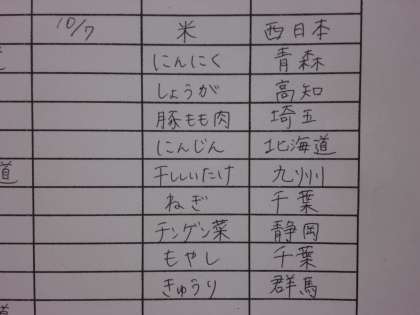 10/7 米 西日本
にんにく 青森
しょうが 高知
豚もも肉 埼玉
にんじん 北海道
道 干ししいたけ 九州
ねぎ 千葉
チンゲン菜 静岡
もやし 千葉
きゅうり 群馬